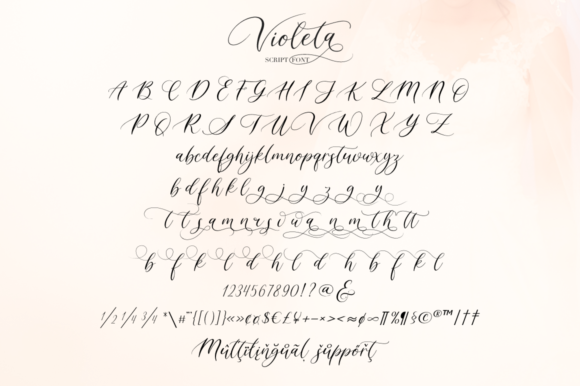 Violeta
SCRIPT FONT
A B C D E F G H I J K L M N O
P Q R S T U V W X Y Z
abcdefghijklmnopqrstuvwxyz
b d f h k l g j y z g y
t t s a m n r s i w a n m t h tt
b f k l d h l d h b f k l
1234567890!?@&
1/2 1/4 3/4 *\#¨{[()]}«»¢¤$€£¥+−×><≈
Mültïlïñğüāl šüppörţ